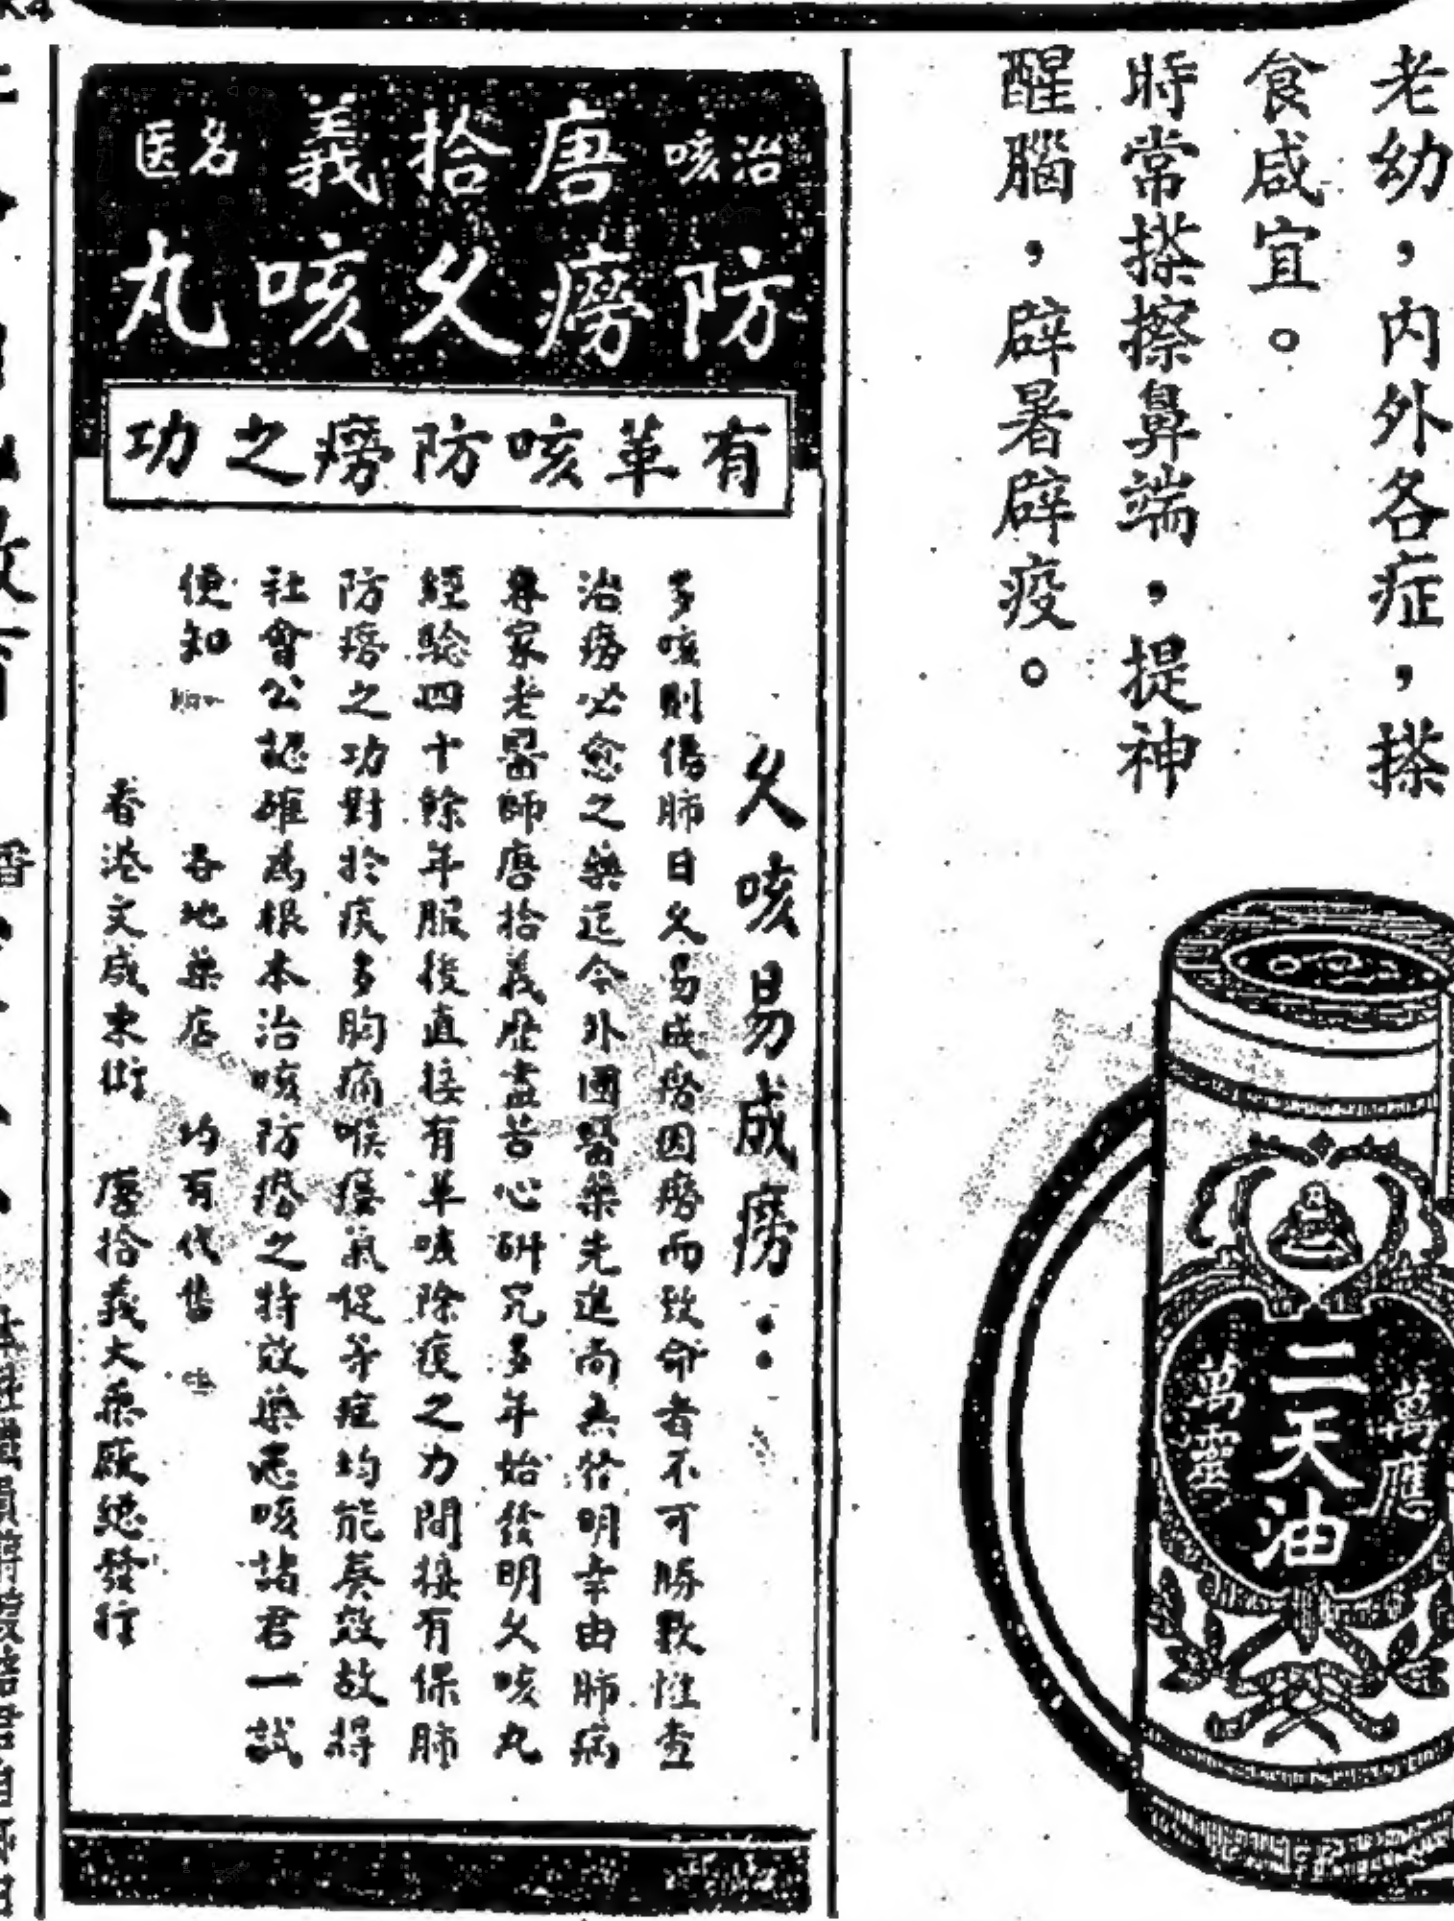 老幼，內外各症，搽
食咸宜。
時常搽擦鼻端，提神
醒腦，辟暑辟疫。
萬應
二天油
萬靈
治咳 唐拾義 名医
防癆久咳丸
有革咳防癆之功
久咳易成癆：
多咳則傷肺日久易成癆因癆而致命者不可勝數惟查
治癆必愈之藥迄今外國醫藥先進尚無發明幸由肺病
專家老醫師唐拾義歷盡苦心研究多年始發明久咳丸
經驗四十餘年服後直接有革咳除痰之力間接有保肺
防癆之功對於痰多胸痛喉癢氣促等症均能奏效故得
社會公認確為根本治咳防癆之特效藥患咳諸君一試
便知
各地藥店 均有代售
香港文咸東街 唐拾義大藥廠總發行